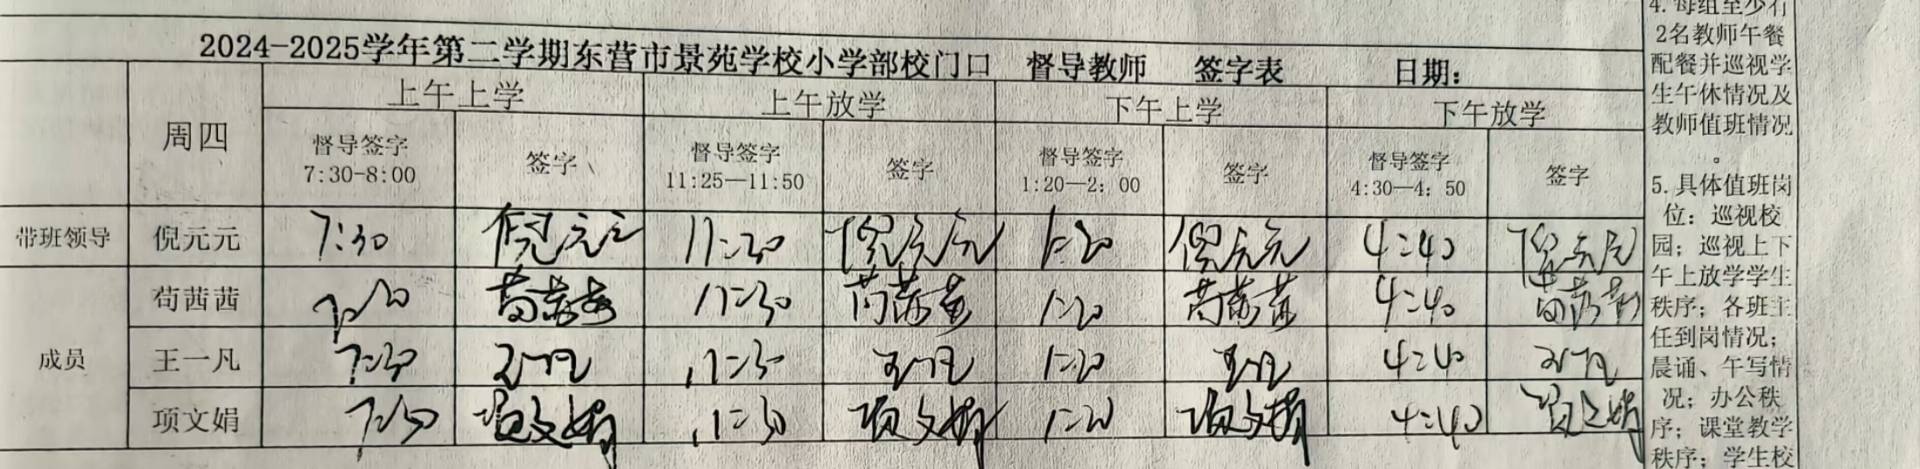 2024-2025学年第二学期东营市景苑学校小学部校门口 督导教师 签字表 日期：
周四 上午上学 上午放学 下午上学 下午放学
督导签字 签字 督导签字 签字 督导签字 签字 督导签字 签字
7:30-8:00 11:25—11:50 1:20—2：00 4:30—4：50
带班领导 倪元元 7:30 倪元元 11:30 倪元元 1:20 倪元元 4:40 倪元元
成员
苟茜茜 7:30 苟茜茜 11:30 苟茜茜 1:20 苟茜茜 4:40 苟茜茜
王一凡 7:30 王一凡 11:30 王一凡 1:20 王一凡 4:40 王一凡
项文娟 7:30 项文娟 11:30 项文娟 1:20 项文娟 4:40 项文娟
4.每组至少有
2名教师午餐
配餐并巡视学
生午休情况及
教师值班情况
。
5.具体值班岗
位：巡视校
园；巡视上下
午上放学学生
秩序；各班主
任到岗情况；
晨诵、午写情
况；办公秩
序；课堂教学
秩序；学生校